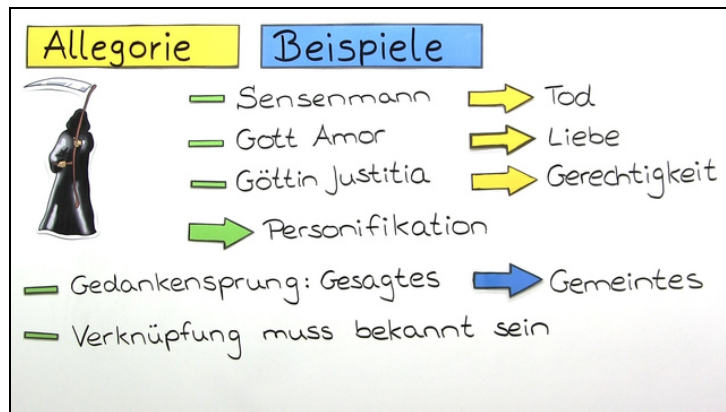 Allegorie Beispiele
Sensenmann Tod
Gott Amor Liebe
Göttin Justitia Gerechtigkeit
Personifikation
Gedankensprung: Gesagtes Gemeintes
Verknüpfung muss bekannt sein